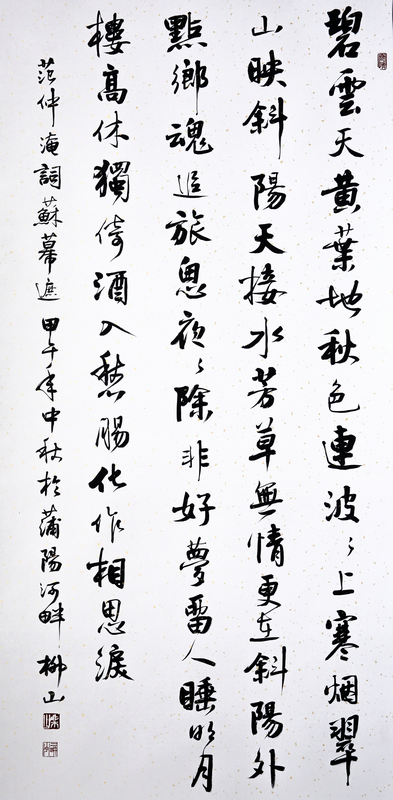 碧雲天黃葉地秋色連波〻上寒烟翠
山映斜陽天接水芳草無情更在斜陽外
點鄉魂追旅思夜〻除非好夢留人睡明月
樓高休獨倚酒入愁腸化作相思淚
范仲淹詞蘇幕遮甲午年中秋於蒲陽河畔 柳山